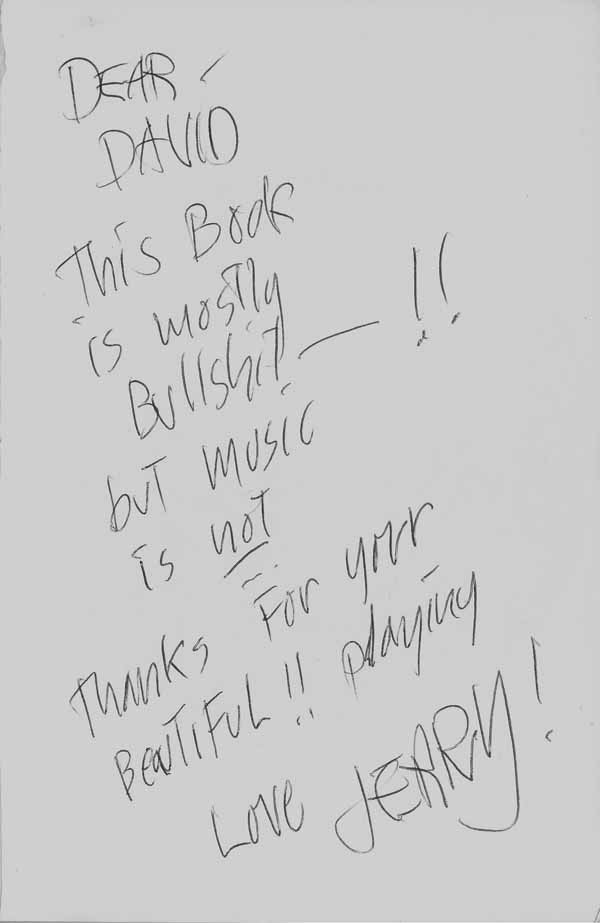 DEAR -
DAVID
This Book
is mostly
Bullshit — !!
but music
is not
Thanks For your
BEAUTIFUL!! playing
Love JERRY!